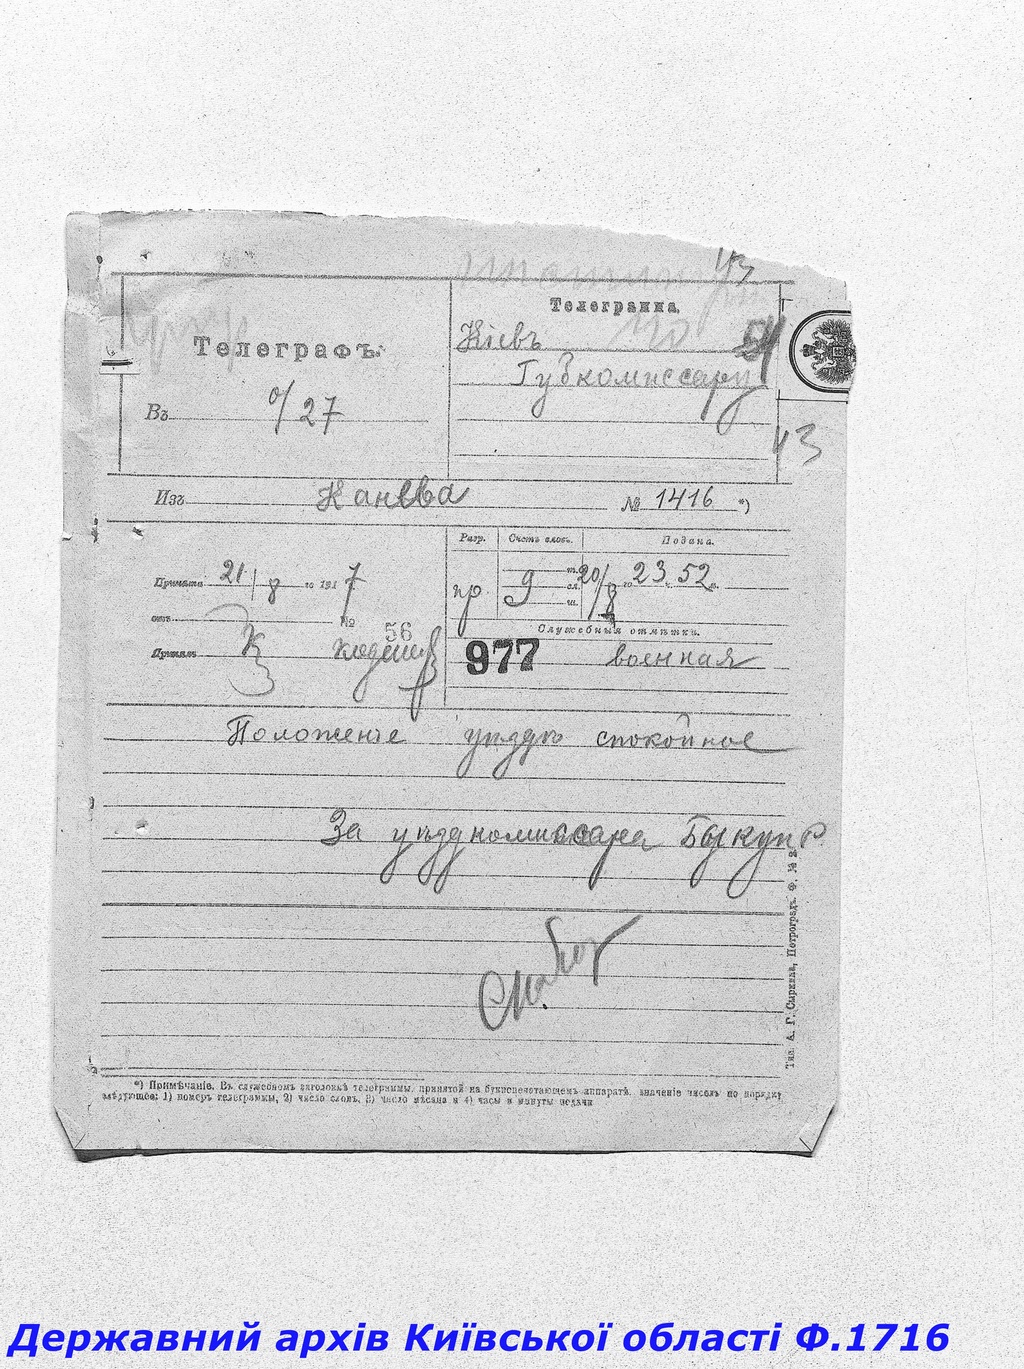 43
Телеграмма.
Кіевъ
54
Губкомиссару
Телеграфъ.
Въ 0/27
43
Изъ Канева № 1416 *)
Разр. Счетъ словъ. Подана.
Принята 21/8 го 1917
пр 9 20/8 го 23 ч. 52 м.
съ № 56
Служебныя отмѣтки.
Принялъ
977 военная
Положенье уѣздѣ спокойное
За уѣздкомиссара
Тип. А. Г. Сыркина, Петроградъ. Ф. № 2.
*) Примѣчаніе. Въ служебномъ заголовкѣ телеграммы, принятой на буквопечатающемъ аппаратѣ, значеніе чиселъ по порядку
слѣдующее: 1) номеръ телеграммы, 2) число словъ, 3) число мѣсяца и 4) часы и минуты подачи
Державний архів Київської області Ф.1716